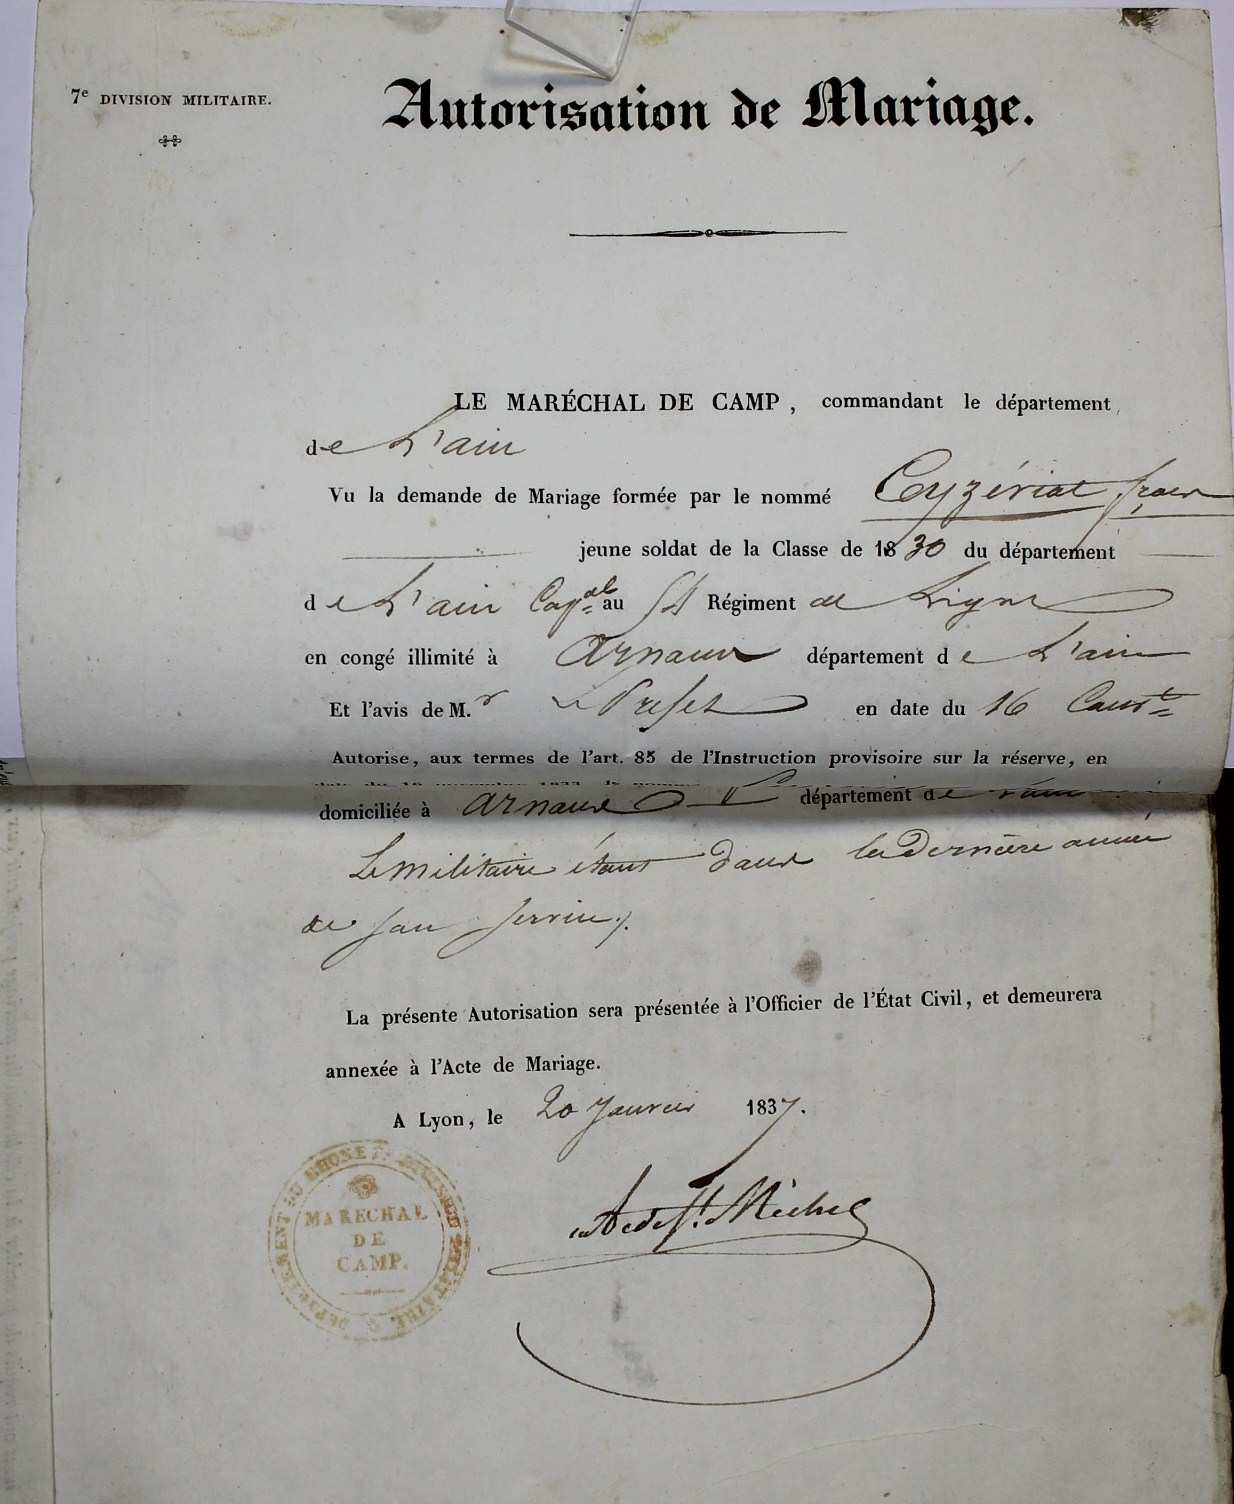 7e DIVISION MILITAIRE.
Autorisation de Mariage.
LE MARÉCHAL DE CAMP, commandant le département
de L'ain
Vu la demande de Mariage formée par le nommé Ceyzériat
jeune soldat de la Classe de 1830 du département
de L'ain Capal au 54 Régiment de Ligne
en congé illimité à Arnans département de L'ain
Et l'avis de M.r Le Préfet en date du 16 Court
Autorise, aux termes de l'art. 85 de l'Instruction provisoire sur la réserve, en
domiciliée à Arnans département de l'ain
Le militaire étant dans la dernière année
de son service.
La présente Autorisation sera présentée à l'Officier de l'État Civil, et demeurera
annexée à l'Acte de Mariage.
A Lyon, le 20 Janvier 1837.
DEPARTEMENT DU RHONE
MARECHAL
DE
CAMP.